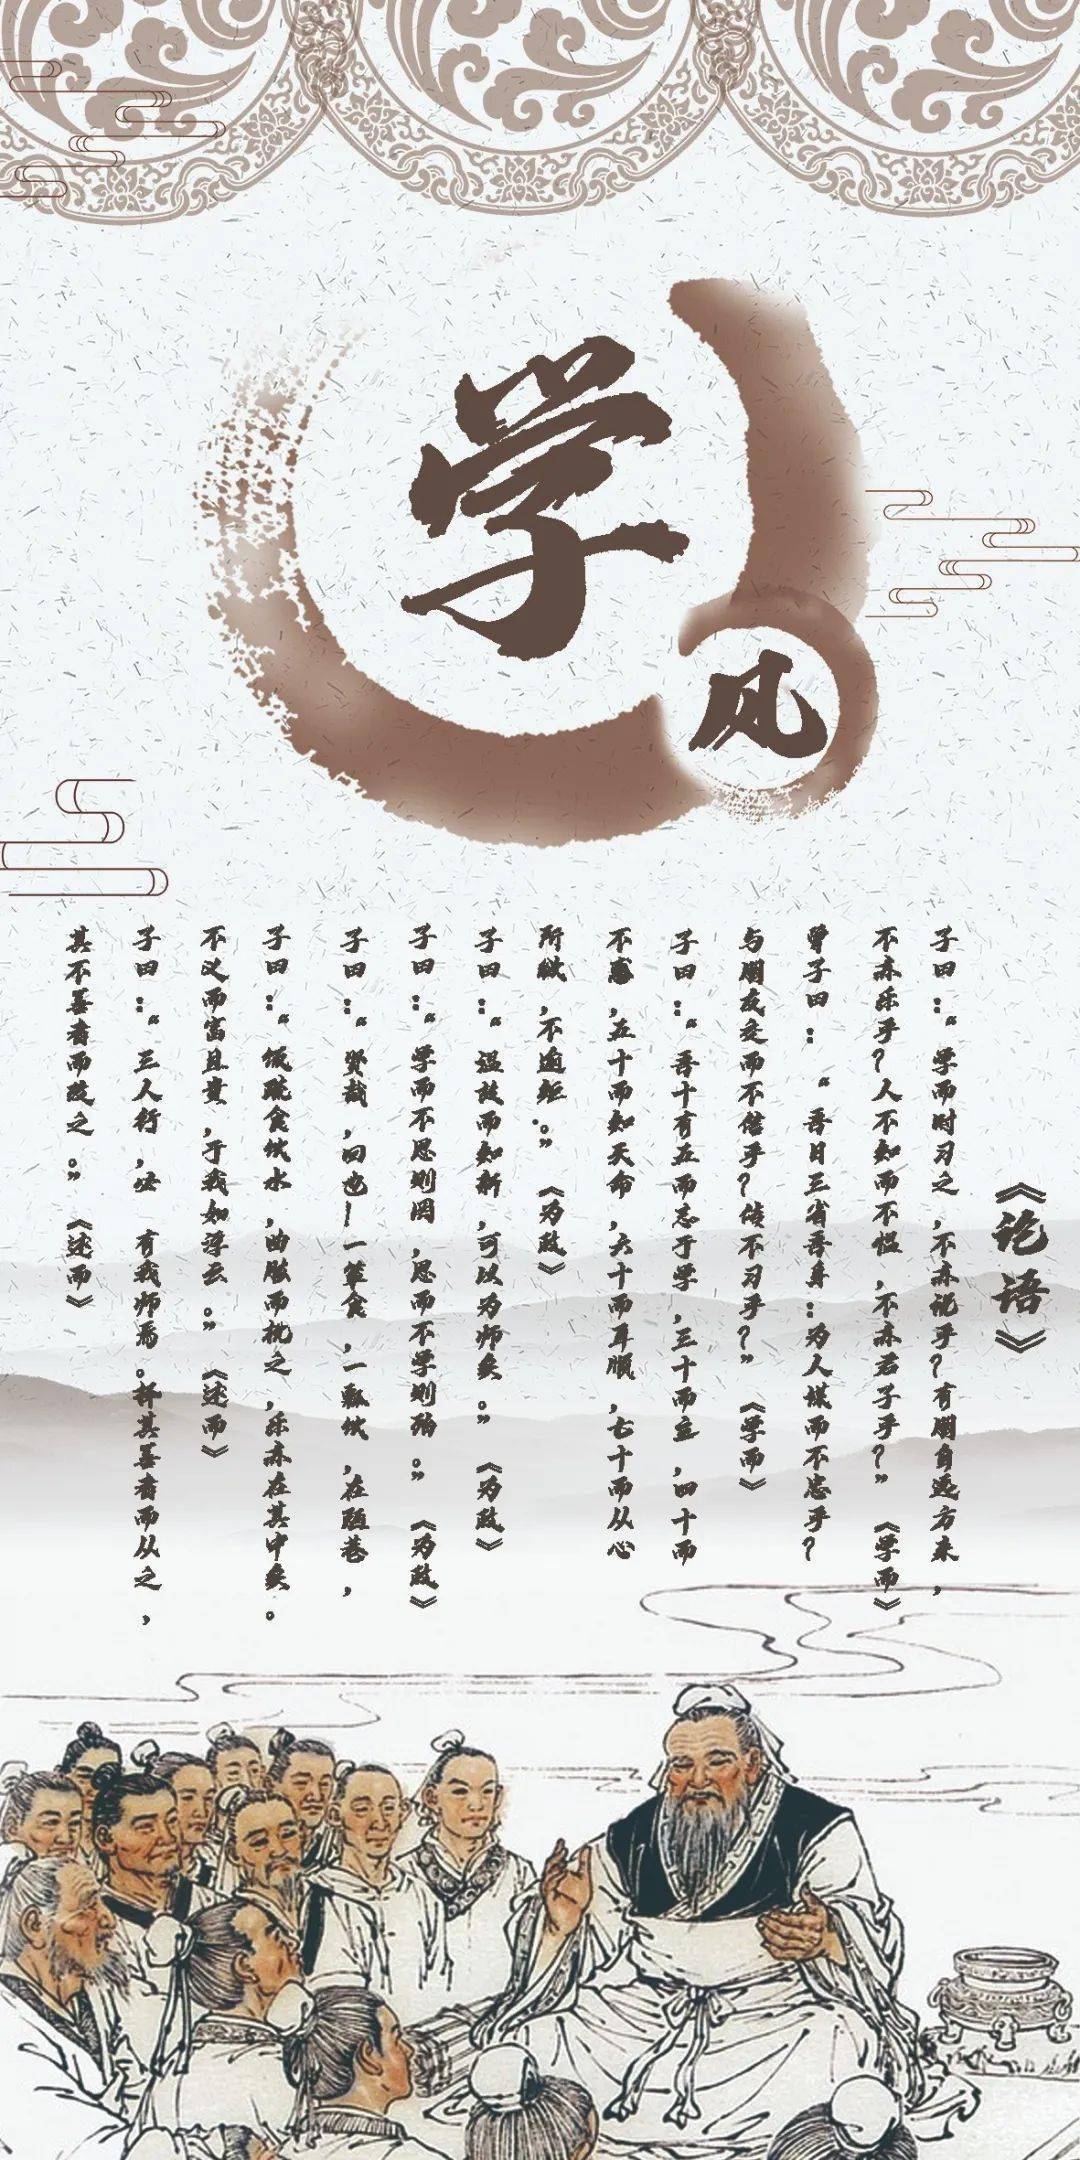 学
风
《论语》
子曰：“学而时习之，不亦说乎？有朋自远方来，
不亦乐乎？人不知而不愠，不亦君子乎？”《学而》
曾子曰：“吾日三省吾身：为人谋而不忠乎？
与朋友交而不信乎？传不习乎？”《学而》
子曰：“吾十有五而志于学，三十而立，四十而
不惑，五十而知天命，六十而耳顺，七十而从心
所欲，不逾矩。”《为政》
子曰：“温故而知新，可以为师矣。”《为政》
子曰：“学而不思则罔，思而不学则殆。”《为政》
子曰：“贤哉，回也！一箪食，一瓢饮，在陋巷，
子曰：“饭疏食饮水，曲肱而枕之，乐亦在其中矣。
不义而富且贵，于我如浮云。”《述而》
子曰：“三人行，必有我师焉。择其善者而从之，
其不善者而改之。”《述而》